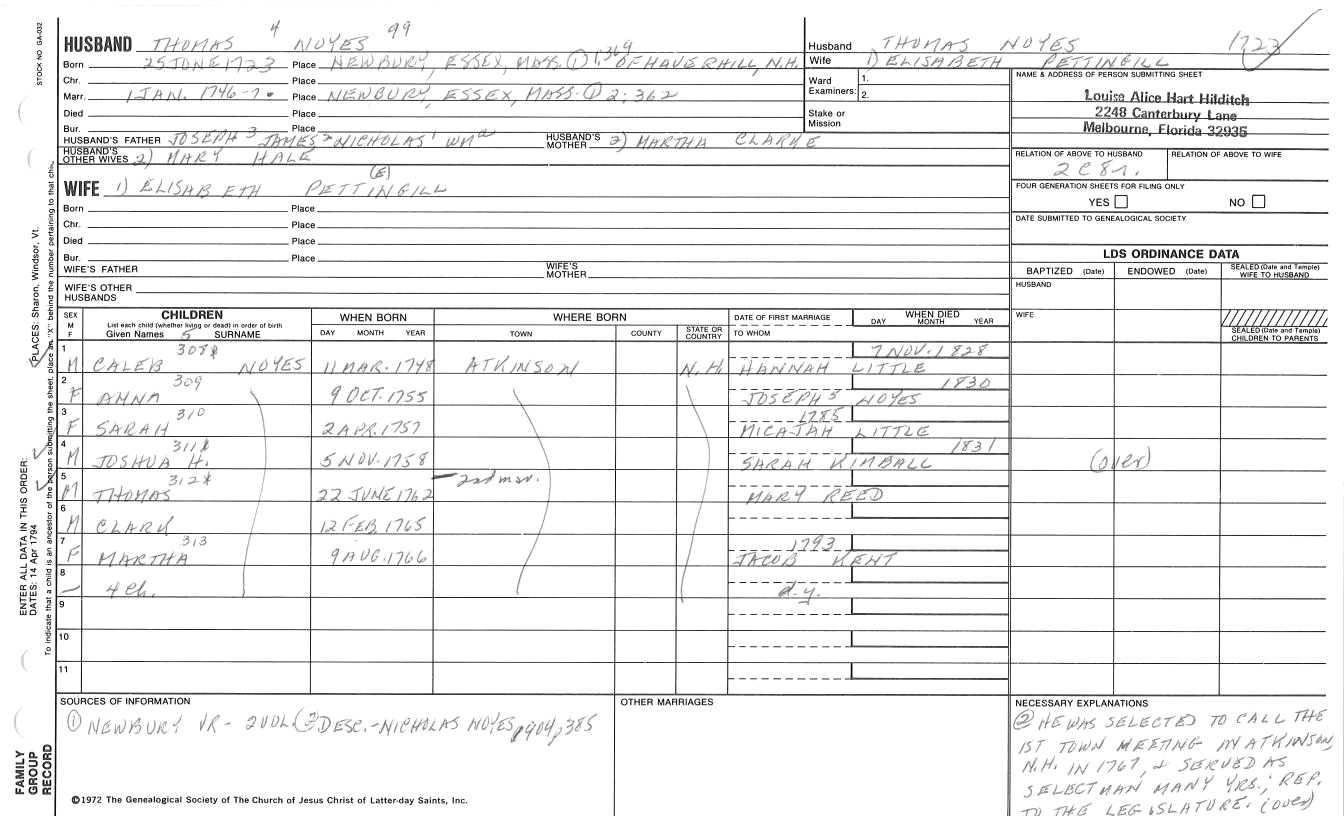 STOCK NO GA-032
HUSBAND THOMAS 4 NOYES 99
Born 25 JUNE 1723 Place NEWBURY, ESSEX, MASS. ① 1,369 OF HAVERHILL, N.H.
Chr. Place
Marr. 1 JAN. 1746-7. Place NEWBURY, ESSEX, MASS. ① 2:362
Died Place
Bur. Place
HUSBAND'S FATHER JOSEPH 3 JAMES 2 NICHOLAS 1 WM a HUSBAND'S MOTHER 2) MARTHA CLARKE
HUSBAND'S OTHER WIVES 2) MARY HALE
Husband THOMAS NOYES 1723
Wife 1) ELISABETH PETTINGILL
Ward Examiners: 1.
2.
Stake or Mission
NAME & ADDRESS OF PERSON SUBMITTING SHEET
Louise Alice Hart Hilditch
2248 Canterbury Lane
Melbourne, Florida 32935
RELATION OF ABOVE TO HUSBAND RELATION OF ABOVE TO WIFE
2C8r.
FOUR GENERATION SHEETS FOR FILING ONLY
YES NO
DATE SUBMITTED TO GENEALOGICAL SOCIETY
WIFE 1) ELISABETH PETTINGILL (E)
Born Place
Chr. Place
Died Place
Bur. Place
WIFE'S FATHER WIFE'S MOTHER
WIFE'S OTHER HUSBANDS
LDS ORDINANCE DATA
BAPTIZED (Date) ENDOWED (Date) SEALED (Date and Temple) WIFE TO HUSBAND
HUSBAND
WIFE
SEALED (Date and Temple) CHILDREN TO PARENTS
SEX M F CHILDREN WHEN BORN WHERE BORN DATE OF FIRST MARRIAGE WHEN DIED
List each child (whether living or dead) in order of birth
Given Names 5 SURNAME DAY MONTH YEAR TOWN COUNTY STATE OR COUNTRY TO WHOM DAY MONTH YEAR
1 308 7 NOV. 1828
M CALEB NOYES 11 MAR. 1748 ATKINSON N.H. HANNAH LITTLE
2 309 1830
F ANNA 9 OCT. 1755 JOSEPH 5 NOYES
3 310 1785
F SARAH 2 APR. 1757 MICAJAH LITTLE
4 311 1831
M JOSHUA H. 5 NOV. 1758 SARAH KIMBALL (over)
5 312 2nd mar.
M THOMAS 22 JUNE 1762 MARY REED
6
M CLARK 12 FEB. 1765
7 313 1793
F MARTHA 9 AUG. 1766 JACOB KENT
8
— 4 ch. d.y.
9
10
11
PLACES: Sharon, Windsor, Vt.
ENTER ALL DATA IN THIS ORDER:
DATES: 14 Apr 1794
To indicate that a child is an ancestor of the person submitting the sheet, place an "X" behind the number pertaining to that child.
FAMILY GROUP RECORD
SOURCES OF INFORMATION
① NEWBURY VR- 2 VOL ② DESC.-NICHOLAS NOYES, 1904, 385
OTHER MARRIAGES
NECESSARY EXPLANATIONS
② HE WAS SELECTED TO CALL THE
1ST TOWN MEETING IN ATKINSON,
N.H. IN 1767, & SERVED AS
SELECTMAN MANY YRS.; REP.
TO THE LEGISLATURE. (over)
©1972 The Genealogical Society of The Church of Jesus Christ of Latter-day Saints, Inc.